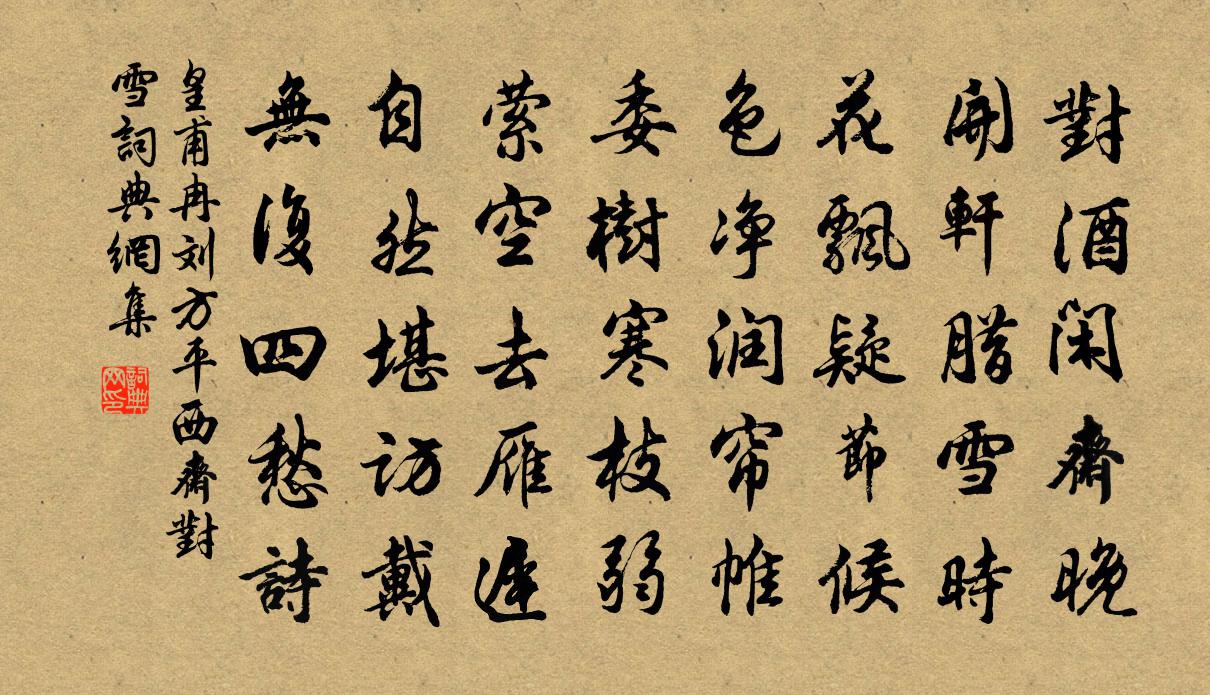 對酒閑齋晚
開軒腊雪時
花飄疑節候
色净潤帘帷
委樹寒枝弱
萦空去雁遲
自然堪訪戴
無復四愁詩
皇甫冉刘方平西齋對
雪詞典網集
詞典
网印